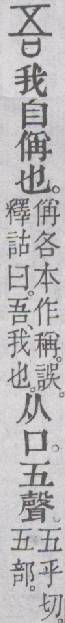 吾我自偁也。偁各本作稱。誤。釋詁曰。吾、我也。从口。五聲。五乎切。五部。